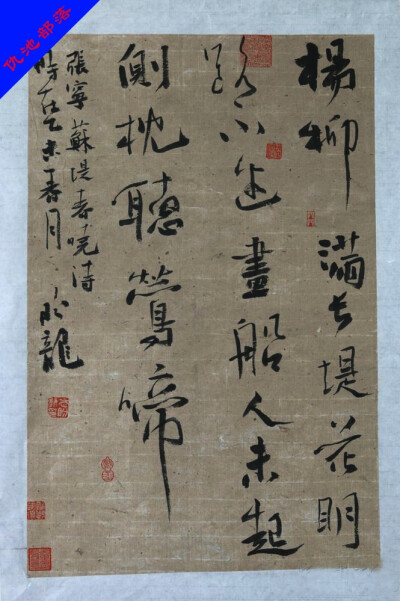 仇池部落
楊柳滿長堤花明
路不迷畫船人未起
側枕聽鶯啼
張寧蘇堤春曉詩
時在乙未春月龍